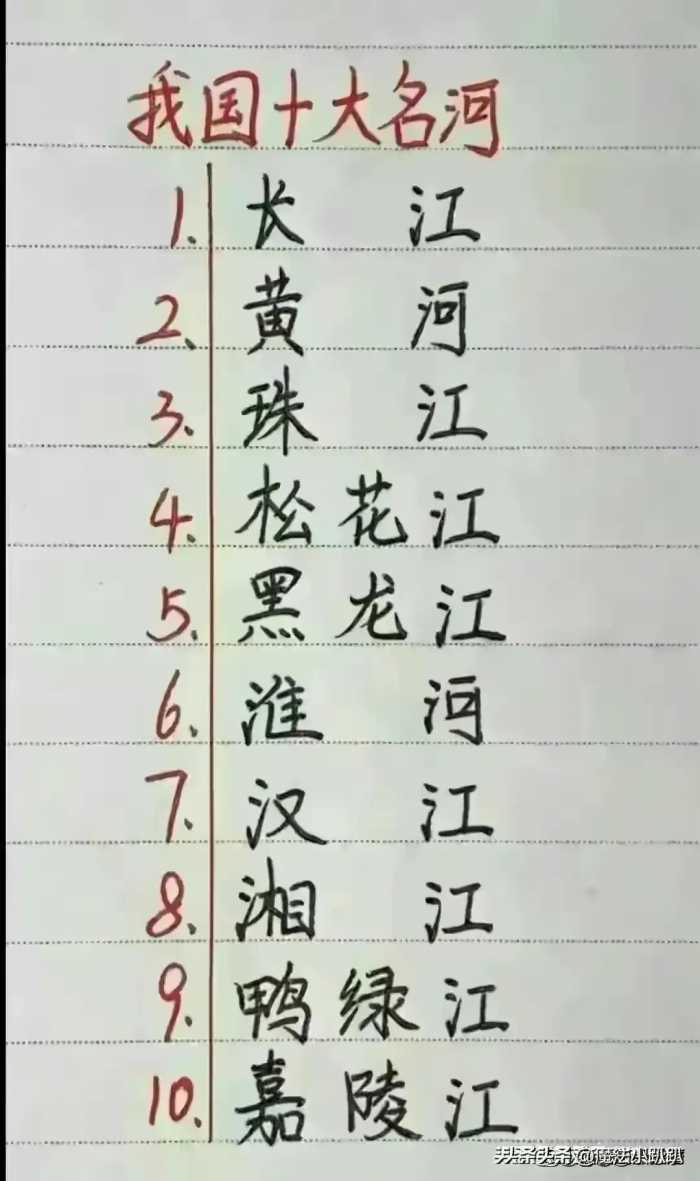 我国十大名河
1. 长江
2、黄河
3、珠江
4、松花江
5、黑龙江
6、淮河
7、汉江
8、湘江
9、鸭绿江
10、嘉陵江